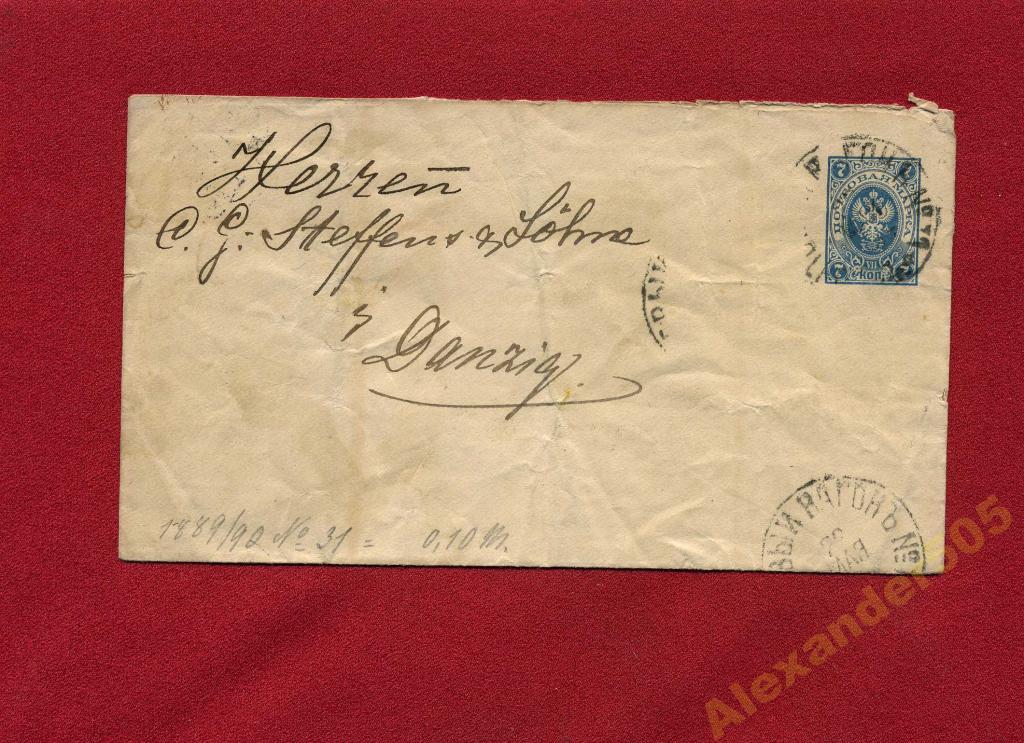 Herren̅
C. G. Steffens & Söhne
Danzig.
7 7
ПОЧТОВАЯ МАРКА
7 коп.
ВЫЙ ВАГОНЪ №
22
МАЯ
1889/90 № 31 = 0,10 M.
Alexander005